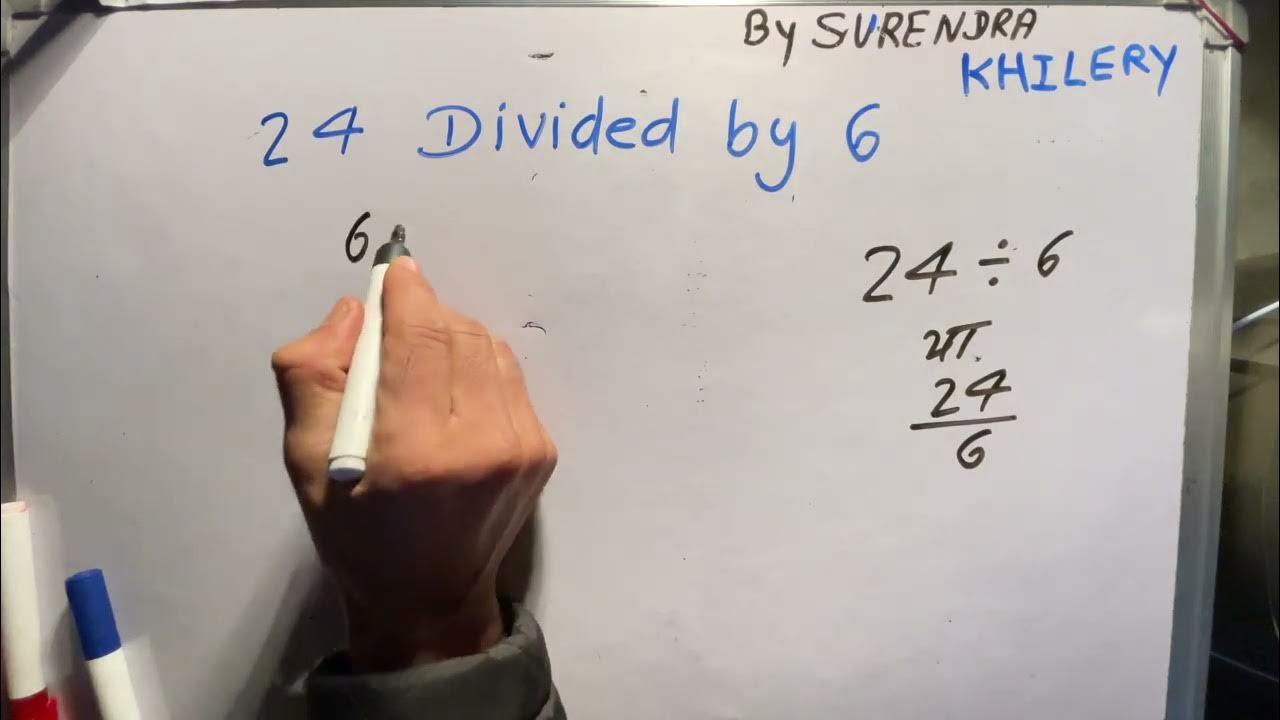 By SURENDRA
KHILERY
24 Divided by 6
6
24 ÷ 6
या
24
6